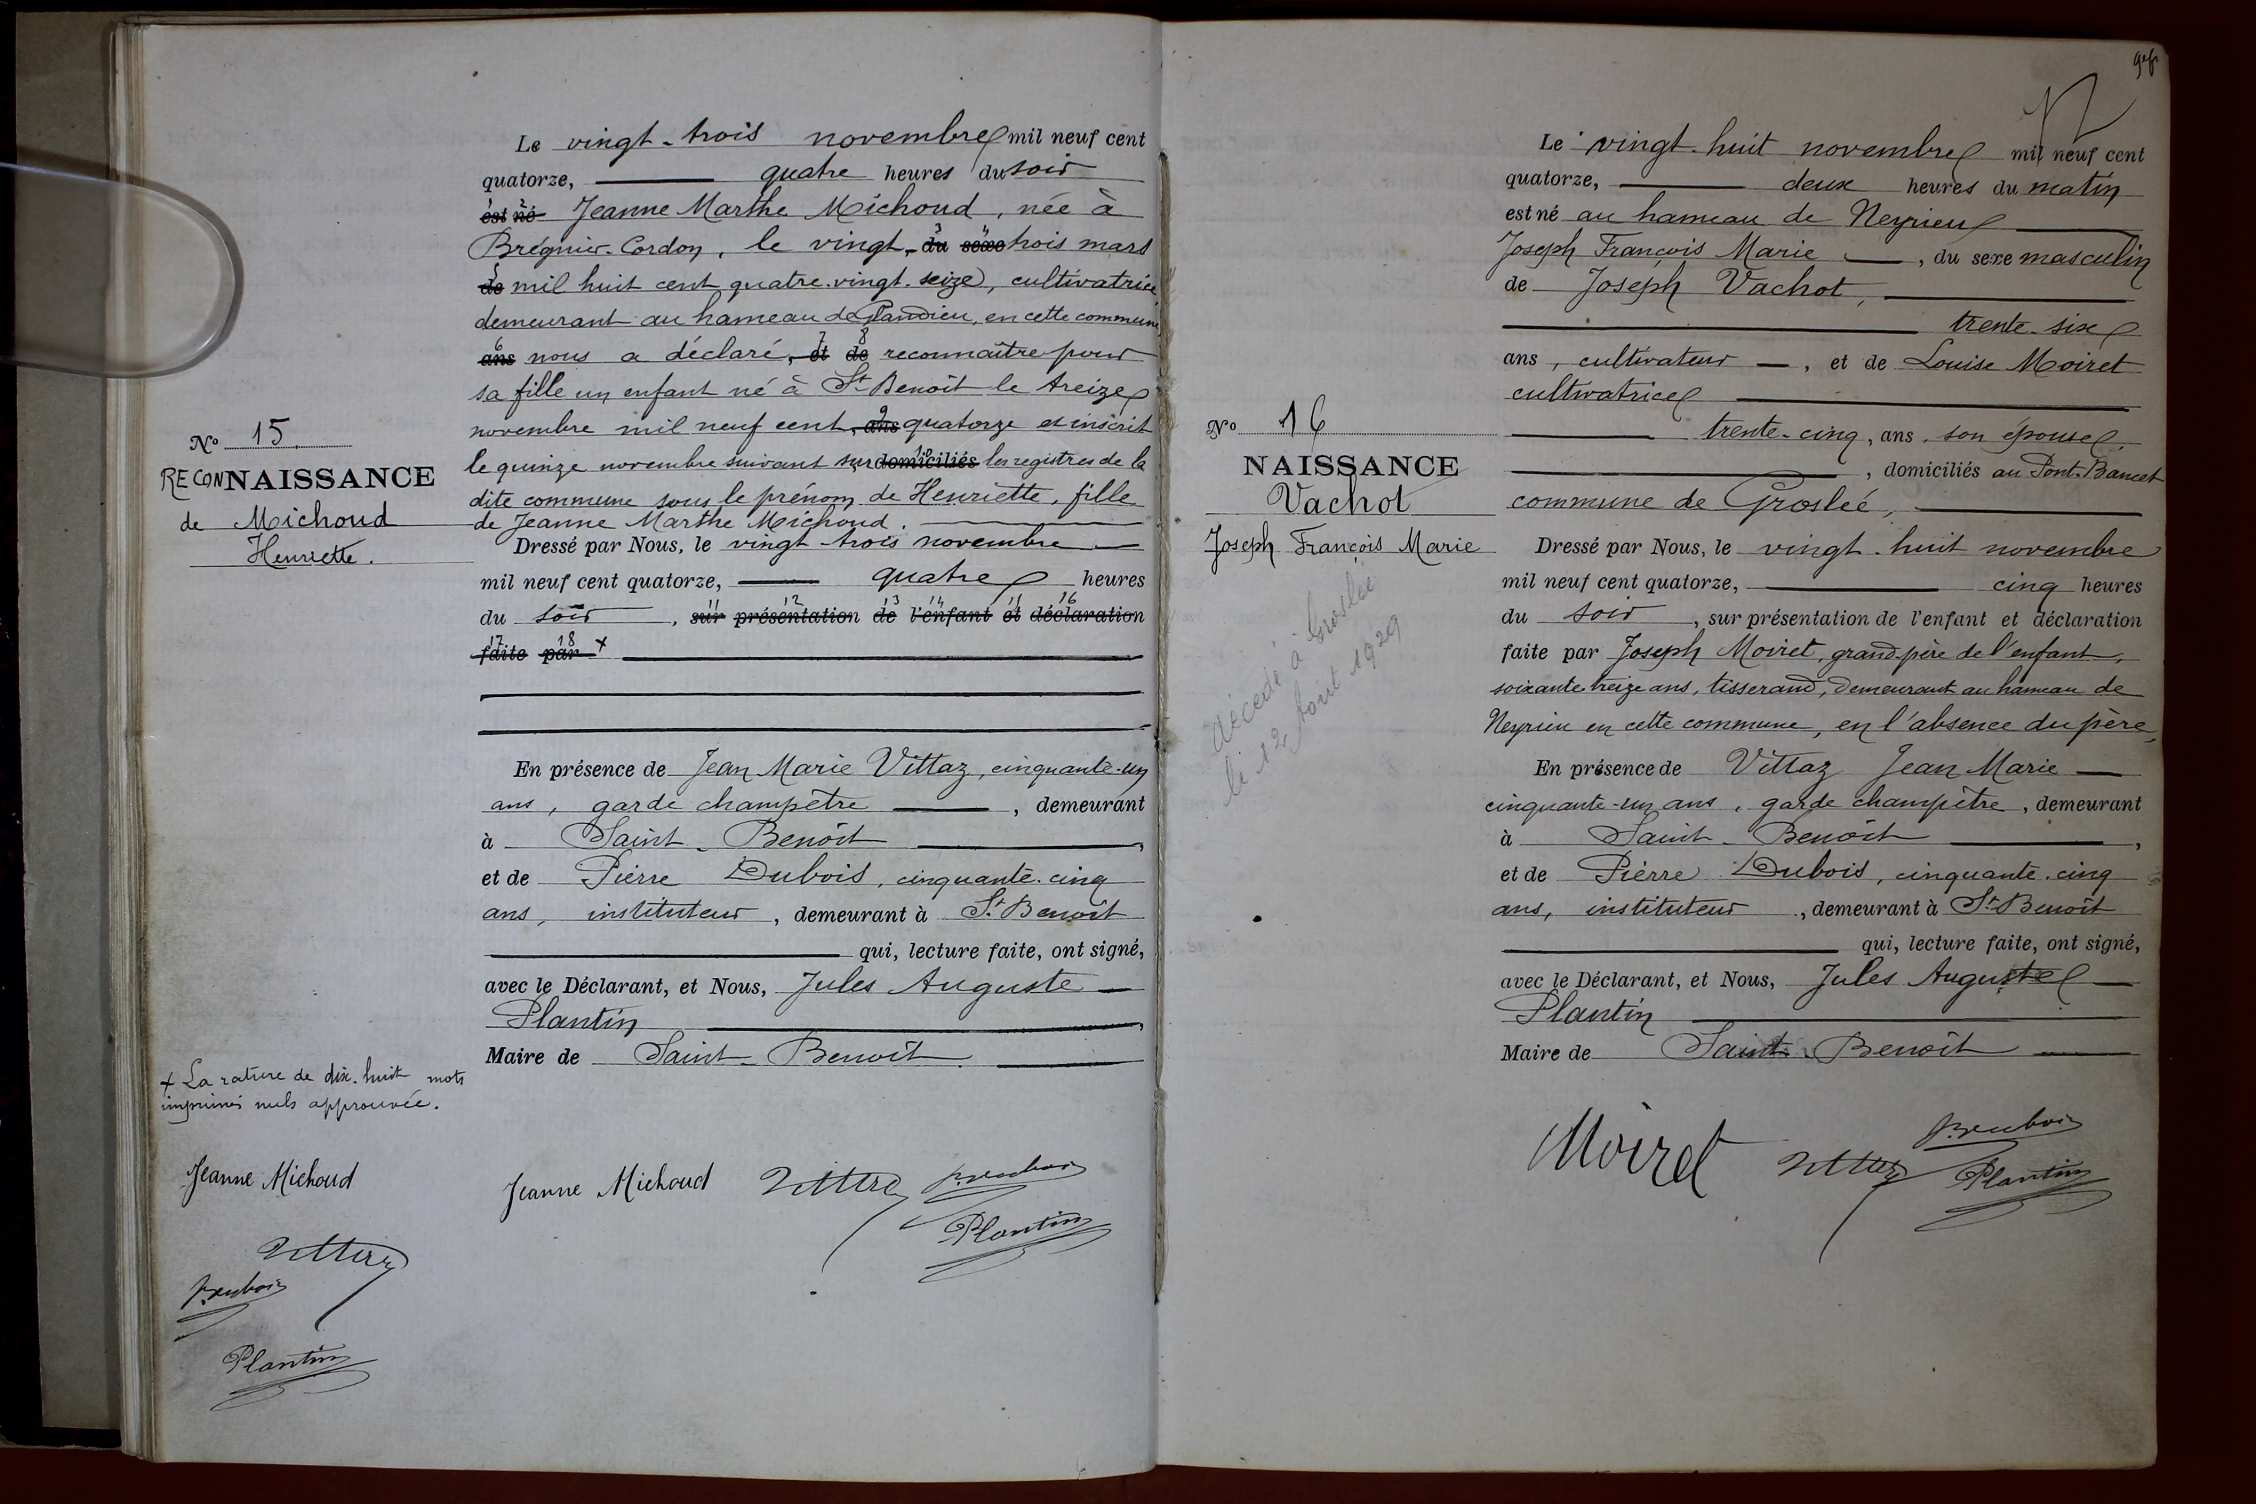 Le vingt-trois novembre mil neuf cent
quatorze, quatre heures du soir
est né Jeanne Marthe Michoud, née à
Brégnier-Cordon, le vingt- du sexe trois mars
de mil huit cent quatre-vingt-seize, cultivatrice
demeurant au hameau de Glandieu, en cette commune
ans nous a déclaré, et de reconnaître pour
sa fille un enfant né à St Benoît le treize
novembre mil neuf cent, ans quatorze et inscrit
le quinze novembre suivant sur domiciliés les registres de la
dite commune sous le prénom de Henriette, fille
de Jeanne Marthe Michoud.
Dressé par Nous, le vingt-trois novembre
mil neuf cent quatorze, quatre heures
du soir, sur présentation de l'enfant et déclaration
faite par +
En présence de Jean Marie Vittaz, cinquante-un
ans, garde champêtre, demeurant
à Saint-Benoît,
et de Pierre Dubois, cinquante-cinq
ans, instituteur, demeurant à St Benoît
qui, lecture faite, ont signé,
avec le Déclarant, et Nous, Jules Auguste
Plantin,
Maire de Saint-Benoît.
No 15
RECONNAISSANCE
de Michoud
Henriette.
+ La rature de dix-huit mots
imprimés nuls approuvée.
Jeanne Michoud
Vittaz
P. Dubois
Plantin
Jeanne Michoud Vittaz P. Dubois
Plantin
Le vingt-huit novembre mil neuf cent
quatorze, deux heures du matin
est né au hameau de Neyrieu
Joseph François Marie, du sexe masculin
de Joseph Vachot,
trente-six
ans, cultivateur, et de Louise Moiret
cultivatrice
trente-cinq, ans, son épouse,
, domiciliés au Pont-Bancet
commune de Groslée,
Dressé par Nous, le vingt-huit novembre
mil neuf cent quatorze, cinq heures
du soir, sur présentation de l'enfant et déclaration
faite par Joseph Moiret, grand-père de l'enfant,
soixante treize ans, tisserand, demeurant au hameau de
Neyrieu en cette commune, en l'absence du père,
En présence de Vittaz Jean Marie
cinquante-un ans, garde champêtre, demeurant
à Saint-Benoît,
et de Pierre Dubois, cinquante-cinq
ans, instituteur, demeurant à St Benoît
qui, lecture faite, ont signé,
avec le Déclarant, et Nous, Jules Auguste
Plantin
Maire de Saint-Benoît
No 16
NAISSANCE
Vachot
Joseph François Marie
décédé à Groslée
le 12 Août 1929
Moiret Vittaz P. Dubois
Plantin